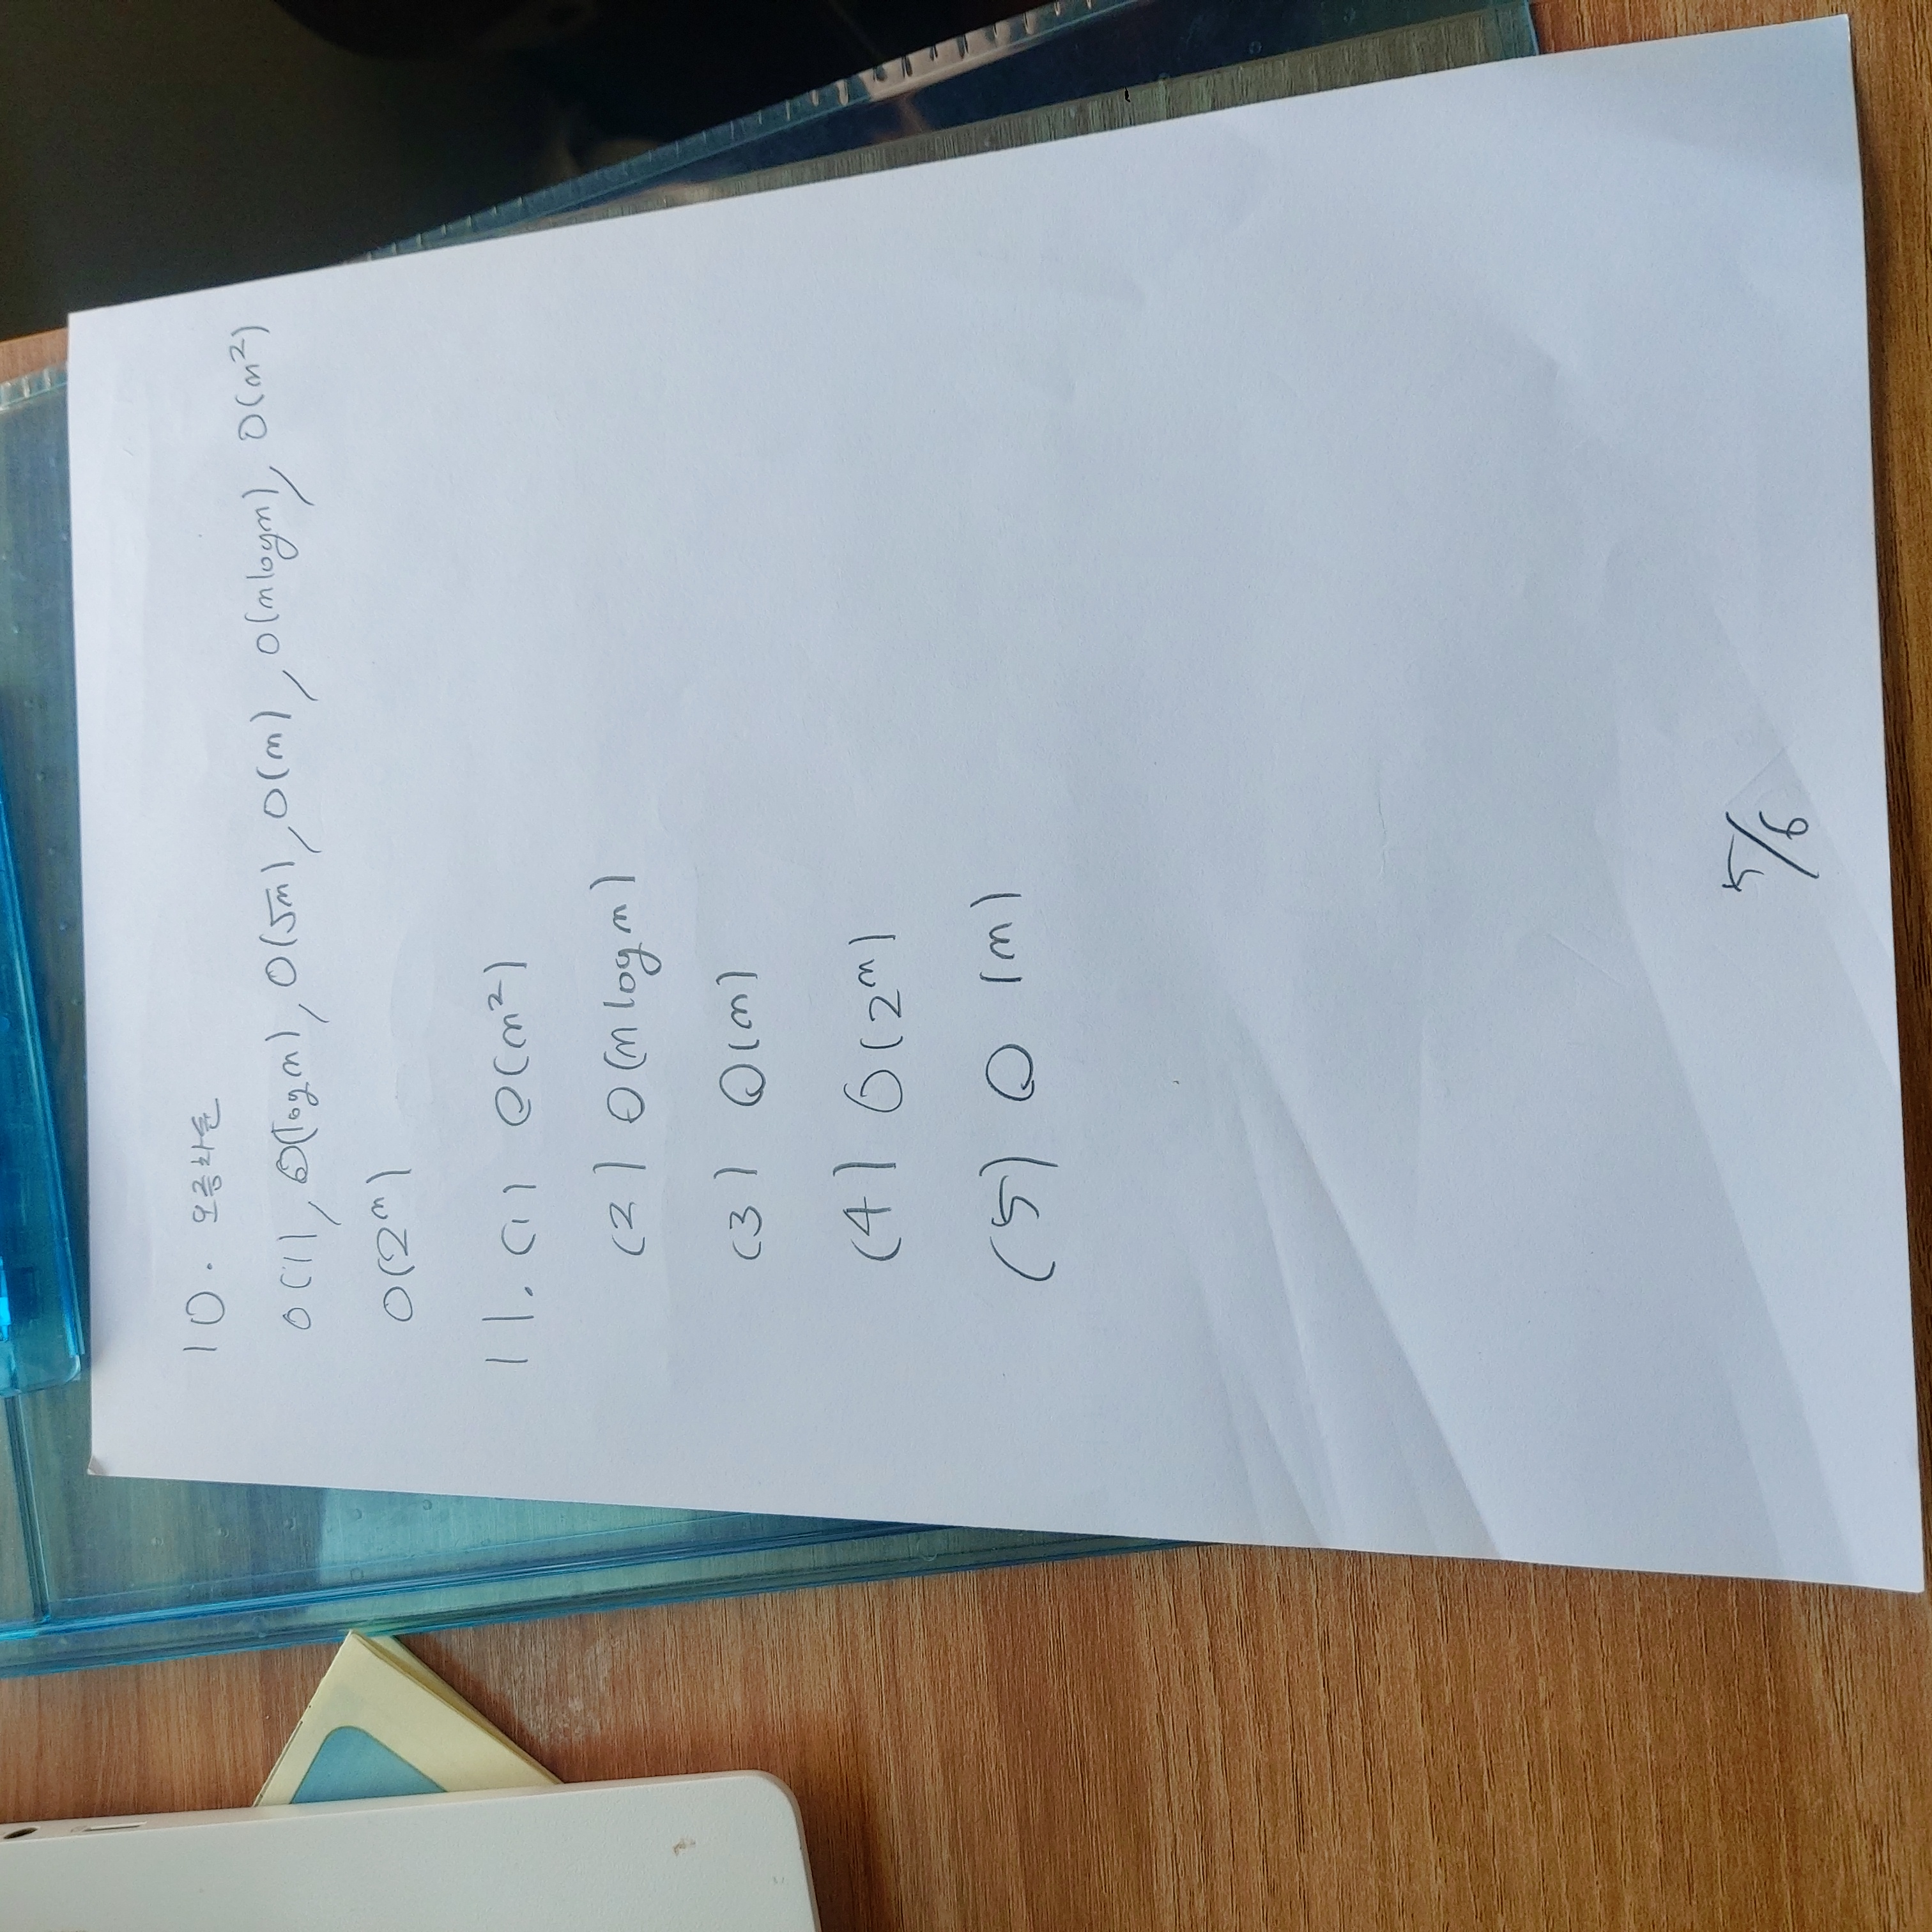 10. 오름차순
O(1), O(log n), O(√n), O(n), O(n log n), O(n²)
O(2ⁿ)
11. (1) O(n²)
(2) O(n log n)
(3) O(n)
(4) O(2ⁿ)
(5) O (n)
5/6